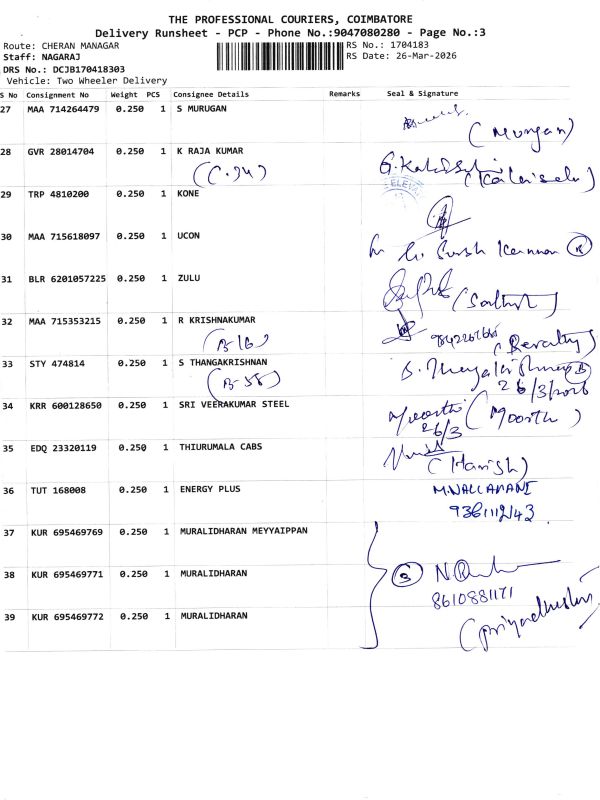 THE PROFESSIONAL COURIERS, COIMBATORE
Delivery Runsheet - PCP - Phone No.:9047080280 - Page No.:3
Route: CHERAN MANAGAR RS No.: 1704183
Staff: NAGARAJ RS Date: 26-Mar-2026
DRS No.: DCJB170418303
Vehicle: Two Wheeler Delivery
S No Consignment No Weight PCS Consignee Details Remarks Seal & Signature
27 MAA 714264479 0.250 1 S MURUGAN
(Murugan)
28 GVR 28014704 0.250 1 K RAJA KUMAR
29 TRP 4810200 0.250 1 KONE
ELEVA
30 MAA 715618097 0.250 1 UCON
31 BLR 6201057225 0.250 1 ZULU
32 MAA 715353215 0.250 1 R KRISHNAKUMAR
(B-16)
33 STY 474814 0.250 1 S THANGAKRISHNAN
(B-55) 26/3/2026
34 KRR 600128650 0.250 1 SRI VEERAKUMAR STEEL
Moorthi (Moorthi)
26/3
35 EDQ 23320119 0.250 1 THIURUMALA CABS
(Harish)
36 TUT 168008 0.250 1 ENERGY PLUS
37 KUR 695469769 0.250 1 MURALIDHARAN MEYYAIPPAN
38 KUR 695469771 0.250 1 MURALIDHARAN
8610881171
39 KUR 695469772 0.250 1 MURALIDHARAN